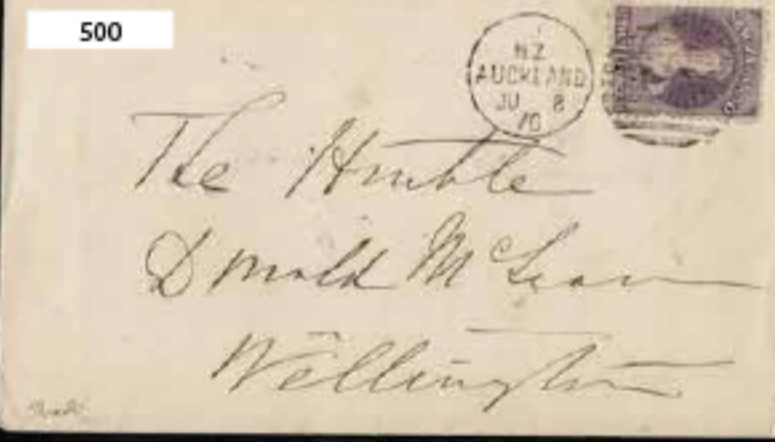 500
NZ
AUCKLAND
JU 8
70
The Honble
Donald McLean
Wellington